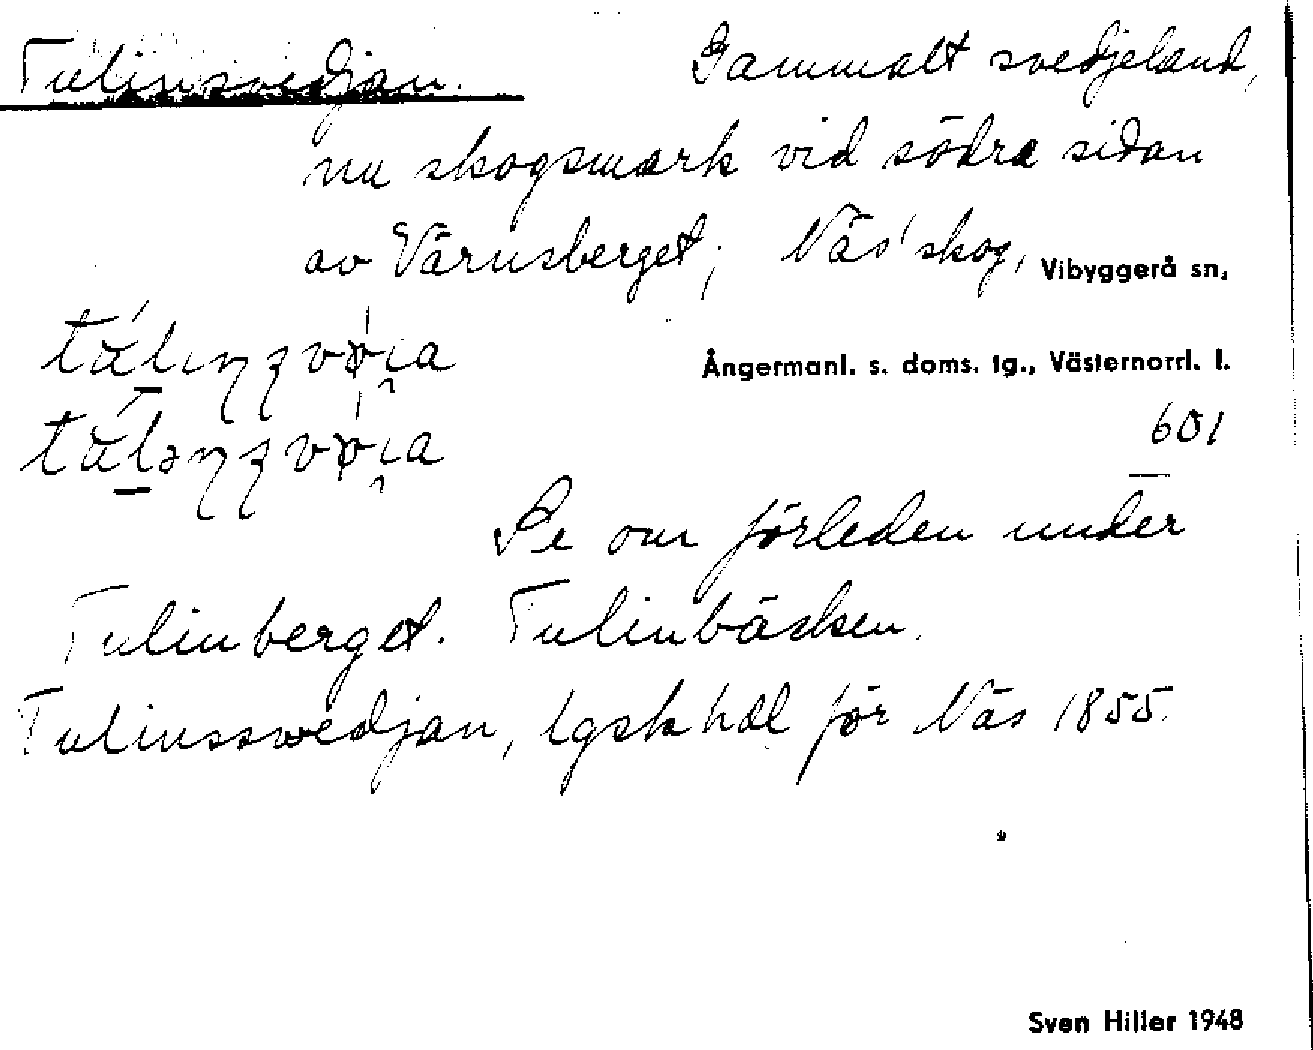 Tulinsvedjan. Gammalt svedjeland,
nu skogsmark vid södra sidan
av Värnsberget; Näs' skog, Vibyggerå sn,
Ångermanl. s. doms. tg., Västernorrl. l.
601
Se om förleden under
Tulinberget. Tulinbäcken.
Tulinssvedjan, lgsk hdl för Näs 1855.
Sven Hiller 1948